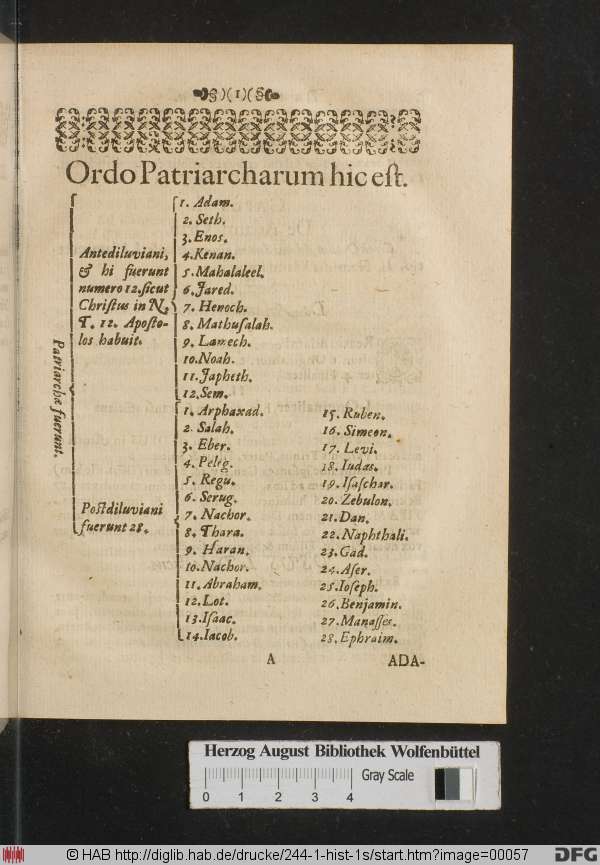 )(1)(
Ordo Patriarcharum hic eſt.
Patriarchæ fuerunt.
Antediluviani,
& hi fuerunt
numero 12. ſicut
Chriſtus in N.
T. 12. Apoſto-
los habuit.
1. Adam.
2. Seth.
3. Enos.
4. Kenan.
5. Mahalaleel.
6. Jared.
7. Henoch.
8. Mathuſalah.
9. Lamech.
10. Noah.
11. Japheth.
12. Sem.
Poſtdiluviani
fuerunt 28.
1. Arphaxad.
2. Salah.
3. Eber.
4. Peleg.
5. Regu.
6. Serug.
7. Nachor.
8. Thara.
9. Haran.
10. Nachor.
11. Abraham.
12. Lot.
13. Iſaac.
14. Iacob.
15. Ruben.
16. Simeon.
17. Levi.
18. Iudas.
19. Iſaſchar.
20. Zebulon.
21. Dan.
22. Naphthali.
23. Gad.
24. Aſer.
25. Ioſeph.
26. Benjamin.
27. Manaſſes.
28. Ephraim.
A
ADA-
Herzog August Bibliothek Wolfenbüttel
Gray Scale
0 1 2 3 4
© HAB http://diglib.hab.de/drucke/244-1-hist-1s/start.htm?image=00057
DFG